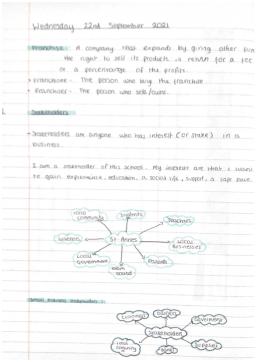 Wednesday 22nd September 2021
Franchise : A company that expands by giving other firms
the right to sell its products in return for a fee
or a percentage of the profits.
Franchisee - The person who buy the franchise.
Franchisor - The person who sells/owns.
Stakeholders
- Stakeholders are anyone who has interest (or stake) in a
business.
I am a stakeholder of this school. My interest are that I want
to gain experience, education, a social life, support, a safe place.
local
community
Students
Teachers
St Annes
Local
Businesses
Local
Government
exam
board
Parents
Stakeholders
Government
Suppliers
Local
community